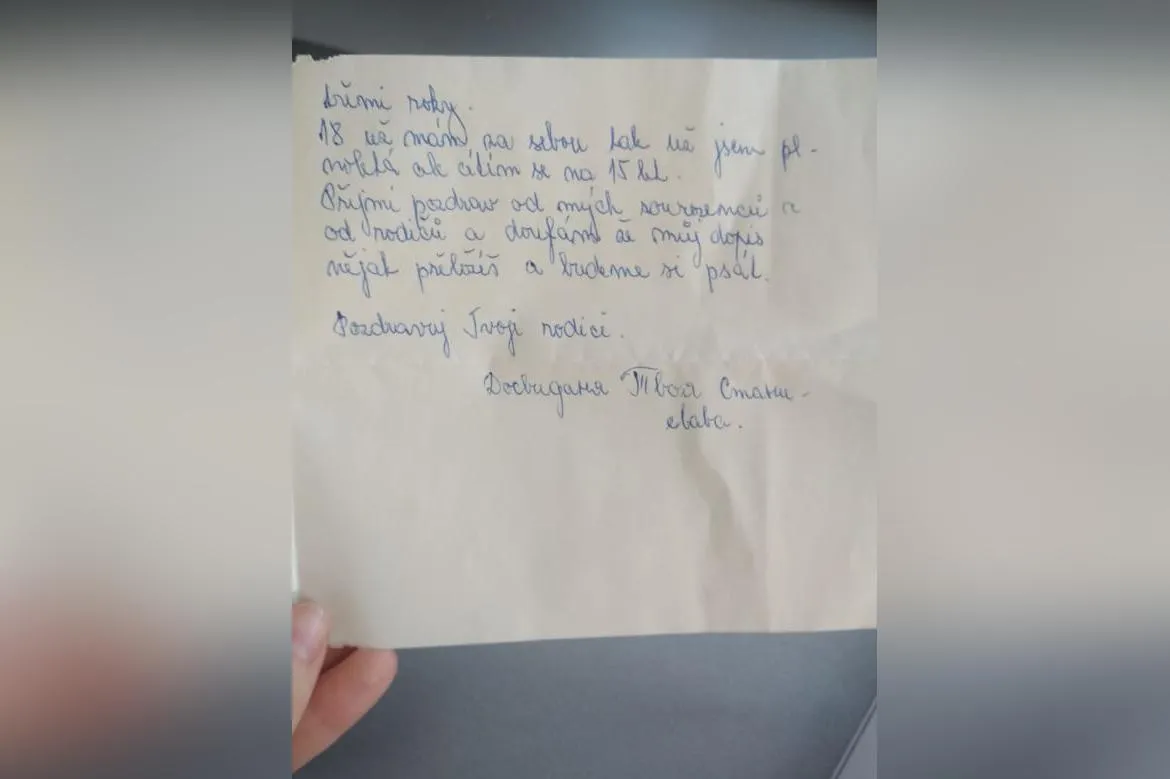 třemi roky.
18 už mám za sebou tak už jsem pl-
noletá ale cítím se na 15 let.
Přijmi pozdrav od mých sourozenců a
od rodičů a doufám že můj dopis
nějak přeložíš a budeme si psát.
Pozdravuj Tvoji rodiči.
Досвиданя Твоя Стани-
слава.